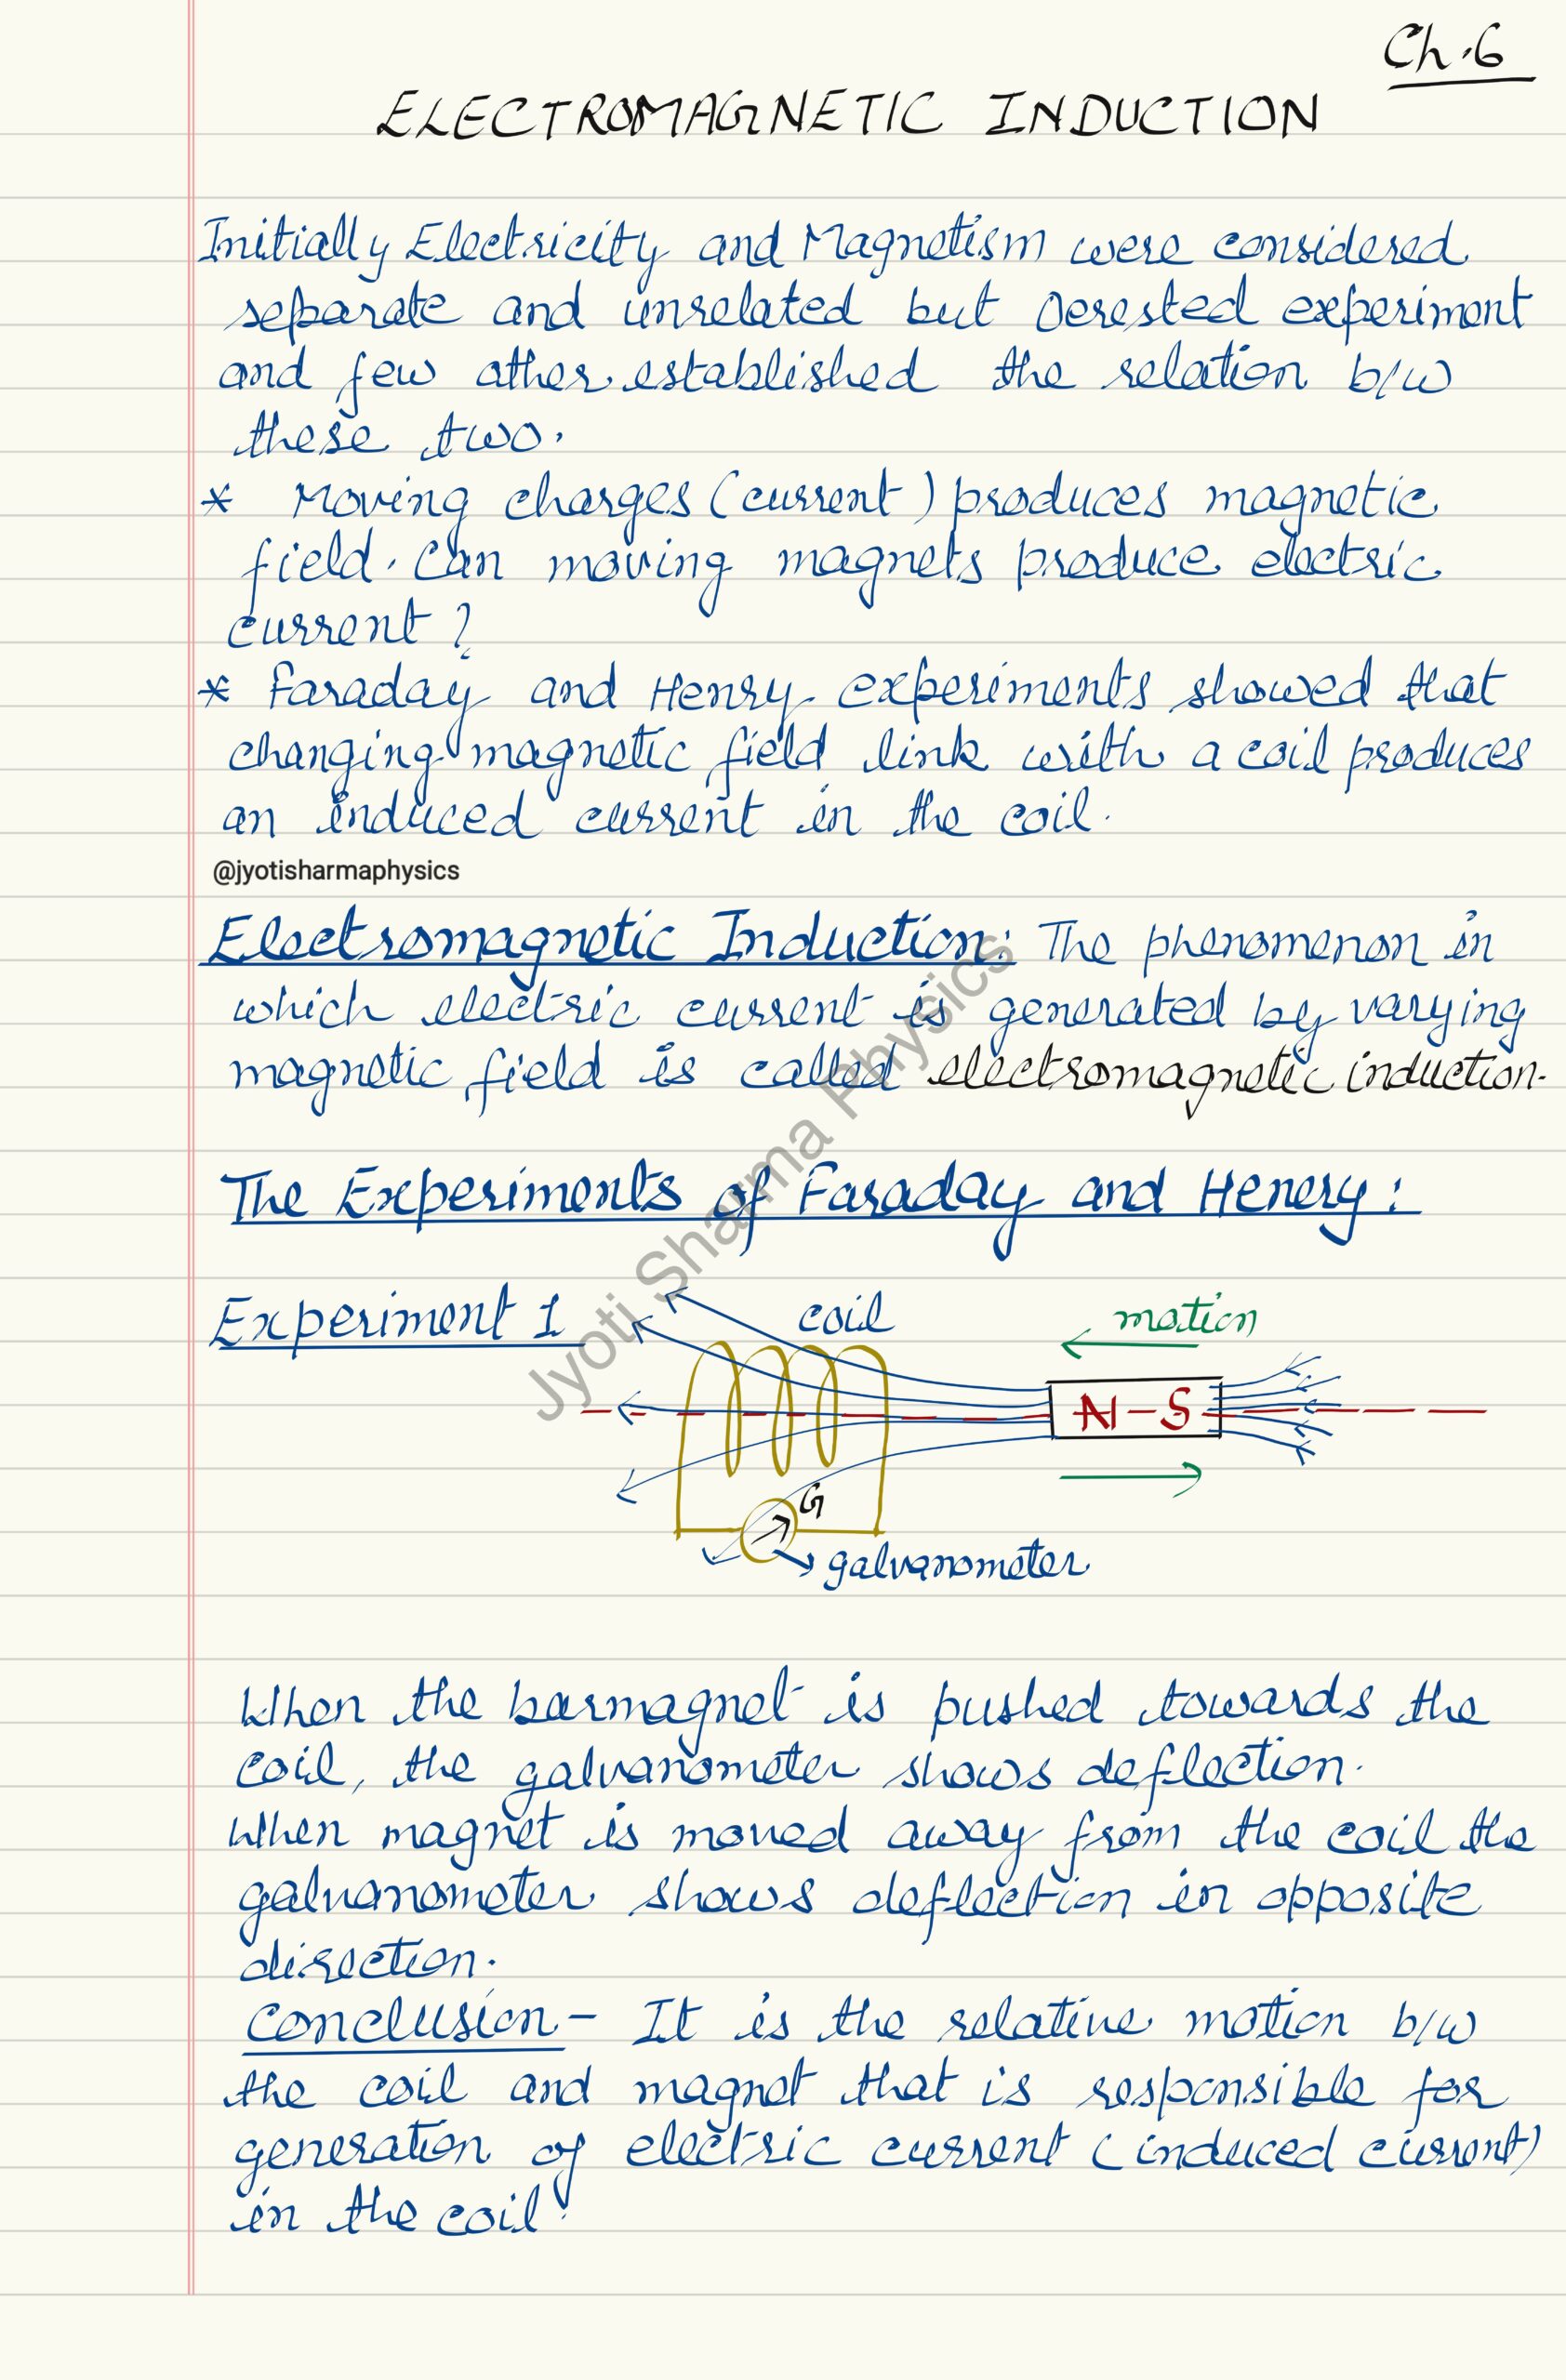 Ch.6
ELECTROMAGNETIC INDUCTION
Initially Electricity and Magnetism were considered
separate and unrelated but Oerested experiment
and few other established the relation b/w
these two.
* Moving charges (current) produces magnetic
field. Can moving magnets produce electric
current?
* Faraday and Henry experiments showed that
changing magnetic field link with a coil produces
an induced current in the coil.
@jyotisharmaphysics
Electromagnetic Induction: The phenomenon in
which electric current is generated by varying
magnetic field is called electromagnetic induction.
The Experiments of Faraday and Henery:
Experiment 1
coil
motion
N-S
G
galvanometer
When the barmagnet is pushed towards the
coil, the galvanometer shows deflection.
When magnet is moved away from the coil the
galvanometer shows deflection in opposite
direction.
Conclusion - It is the relative motion b/w
the coil and magnet that is responsible for
generation of electric current (induced current)
in the coil.
Jyoti Sharma Physics